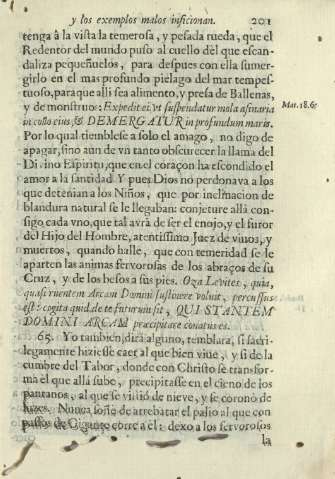 y los exemplos malos inficionan. 201
tenga à la vista la temerosa, y pesada rueda, que el
Redentor del mundo puso al cuello del que escan-
daliza pequeñuelos, para despues con ella sumer-
girlo en el mas profundo pielago del mar tempes-
tuoso, para que alli sea alimento, y presa de Ballenas,
y de monstruos: Expedit ei, vt suspendatur mola asinaria
in collo eius, & DEMERGATUR in profundum maris.
Mat. 18.6.
Por lo qual tiemblese a solo el amago, no digo de
apagar, sino aun de vn tanto obscurecer la llama del
Divino Espiritu, que en el coraçon ha escondido el
amor a la santidad. Y pues Dios no perdonava a los
que detenian a los Niños, que por inclinacion de
blandura natural se le llegaban: conjeture allà con-
sigo cada vno, que tal avrà de ser el enojo, y el furor
del Hijo del Hombre, atentissimo Juez de vivos, y
muertos, quando halle, que con temeridad se le
aparten las animas fervorosas de los abraços de su
Cruz, y de los besos a sus pies. Oza Levites, quia,
quasi ruentem Arcam Domini sustinere voluit, percussus
est: cogita quid de te futurum sit, QUI STANTEM
DOMINI ARCAM præcipitare conatus es.
65. Yo tambien, dirà alguno, temblara, si sacri-
legamente hiziesse caer al que bien vive, y si de la
cumbre del Tabor, donde con Christo se transfor-
ma el que allà sube, precipitasse en el cieno de los
pantanos, al que se vistiò de nieve, y se coronò de
luzes. Nunca soñè de arrebatar el palio al que con
passos de Gigante corre a èl: dexo a los fervorosos
la